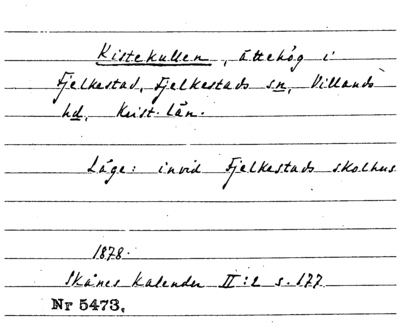 Kistekullen, ättehög i
Fjelkestad, Fjelkestads sn, Villands
hd, Krist. län.
Läge: invid Fjelkestads skolhus
1878.
Skånes Kalender II:2 s. 177
Nr 5473.